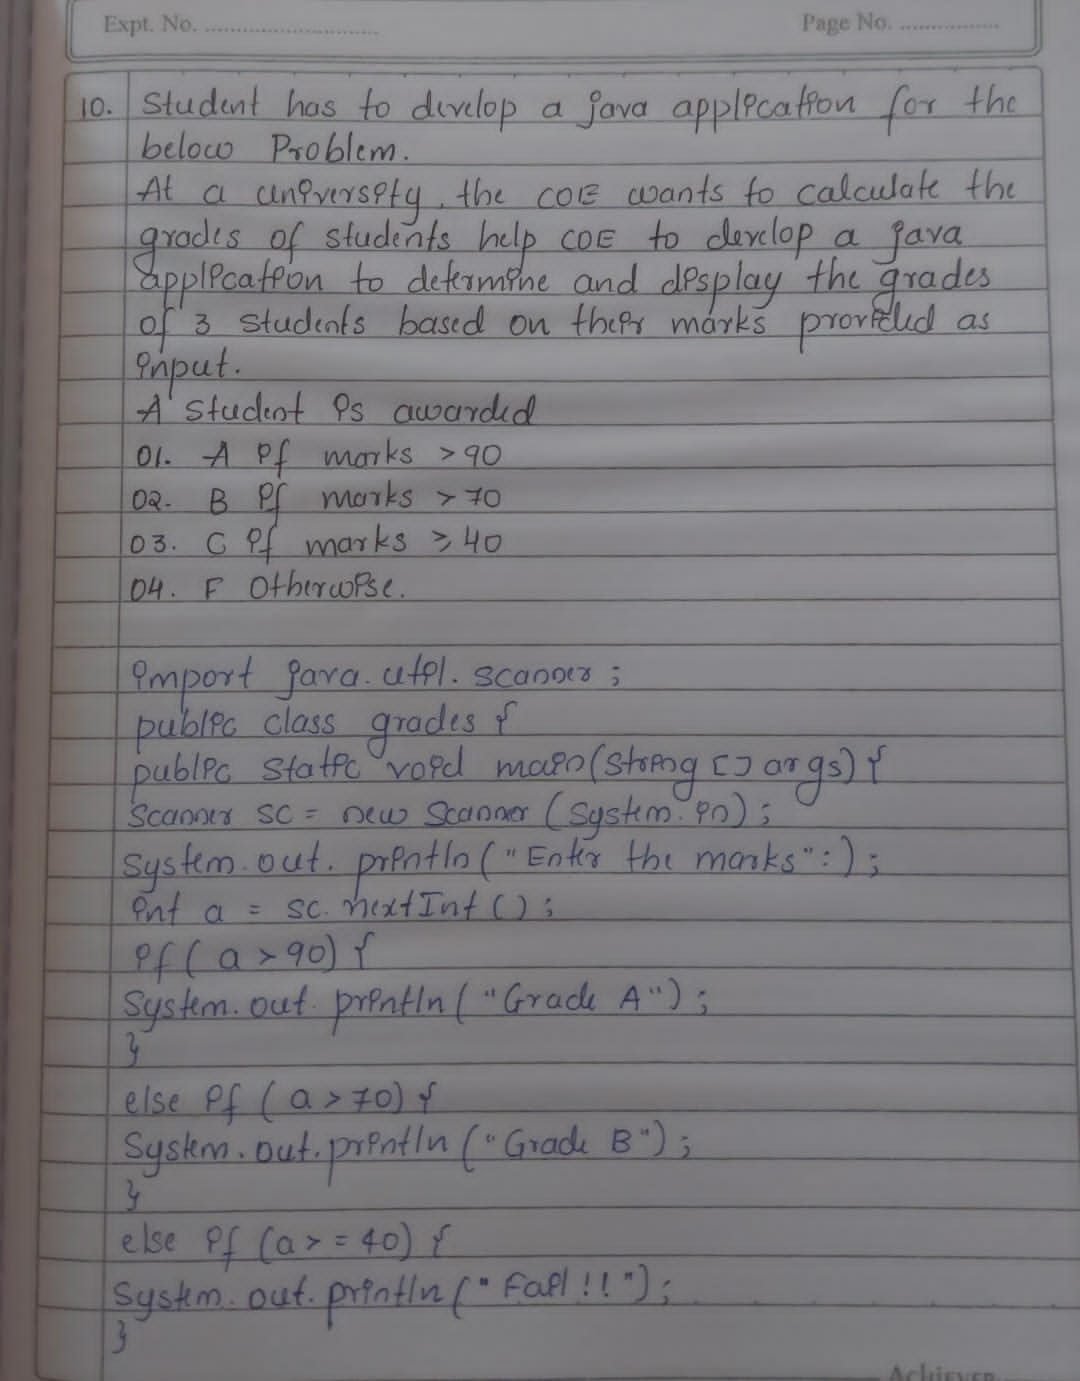 Expt. No. ..............................
Page No. ..................
10. Student has to develop a java application for the
below Problem.
At a university, the COE wants to calculate the
grades of students help COE to develop a java
application to determine and display the grades
of 3 students based on their marks provided as
input.
A student is awarded
01. A if marks >90
02. B if marks > 70
03. C if marks ≥ 40
04. F Otherwise.
import java.util.scanner;
public class grades {
public static void main(String [] args) {
Scanner sc = new Scanner (System.in);
System.out.println("Enter the marks":);
int a = sc.nextInt();
if(a>90) {
System.out.println("Grade A");
}
else if (a>70) {
System.out.println("Grade B");
}
else if (a>=40) {
System.out.println("Fail!!");
}
Achiever